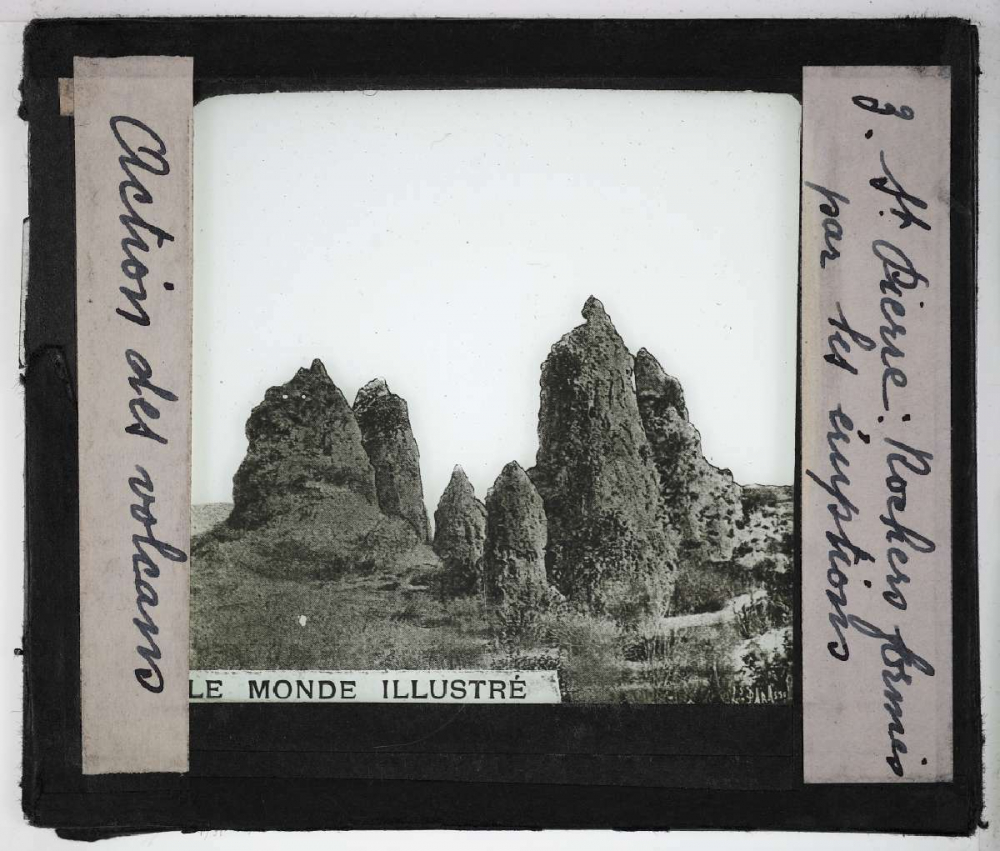 Action des volcans
LE MONDE ILLUSTRÉ
3. St. Pierre: Rochers formés
par les éruptions